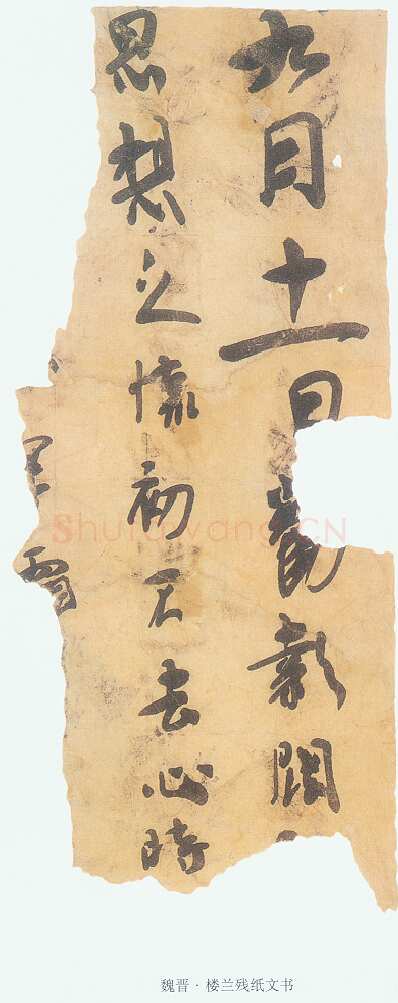 九月十一日 闊
思想之懷初不去心時
Shufawang.CN
魏晋·楼兰残纸文书